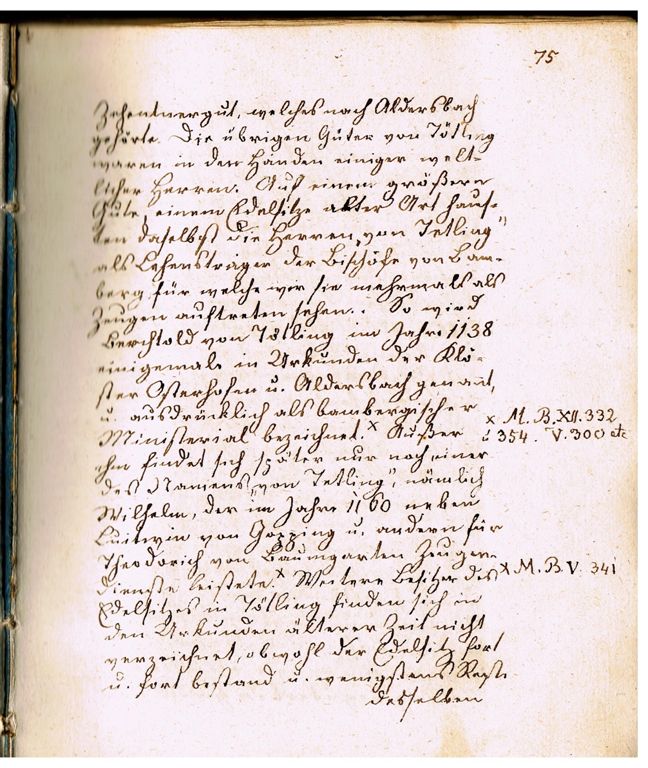 75
Zehentnergut, welches nach Aldersbach
gehörte. Die übrigen Güter von Tötling
waren in den Händen einiger welt-
licher Herren. Auf einem größern
Gute, einem Edelsitze alter Art haus-
ten daselbst die Herren „von Tetling"
als Lehensträger der Bischöfe von Bam-
berg für welche wir sie mehrmals als
Zeugen auftreten sehen. So wird
Berchtold von Tötling im Jahre 1138
einigemale in Urkunden der Klö-
ster Osterhofen u. Aldersbach genannt,
u. ausdrücklich als bambergischer
Ministerial bezeichnet.x Außer
x M. B. XII. 332
u 354. V. 300 etc
ihm findet sich später nur noch einer
des Namens „von Tetling", nämlich
Wilhelm, der im Jahre 1160 neben
Luitwin von Gopping u. andern für
Theodorich von Baumgarten Zeugen-
dienste leistete.x Weitere Besitzer des
x M. B. V. 341
Edelsitzes in Tötling finden sich in
den Urkunden älterer Zeit nicht
verzeichnet, obwohl der Edelsitz fort
u. fort bestand u. wenigstens Reste
desselben